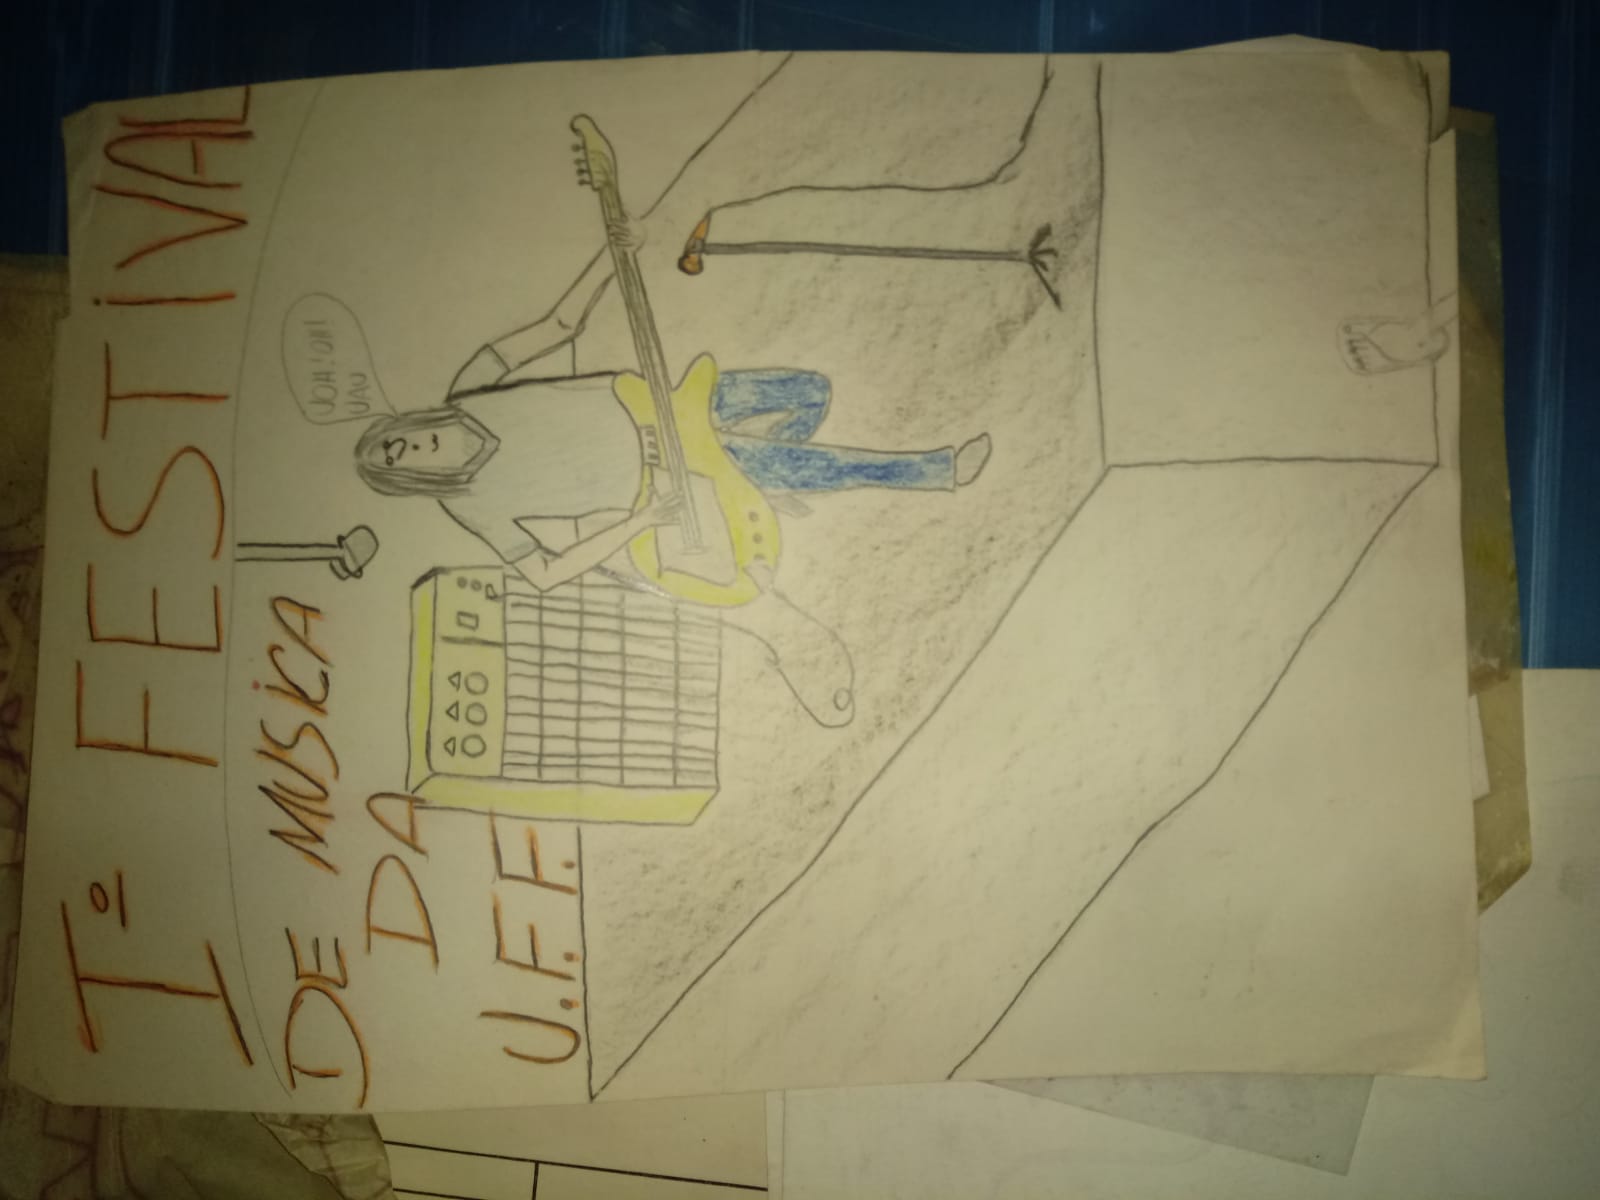 Iº FESTIVAL
DE MUSiCA
DA
U.F.F.
UOH! OH!
UAU